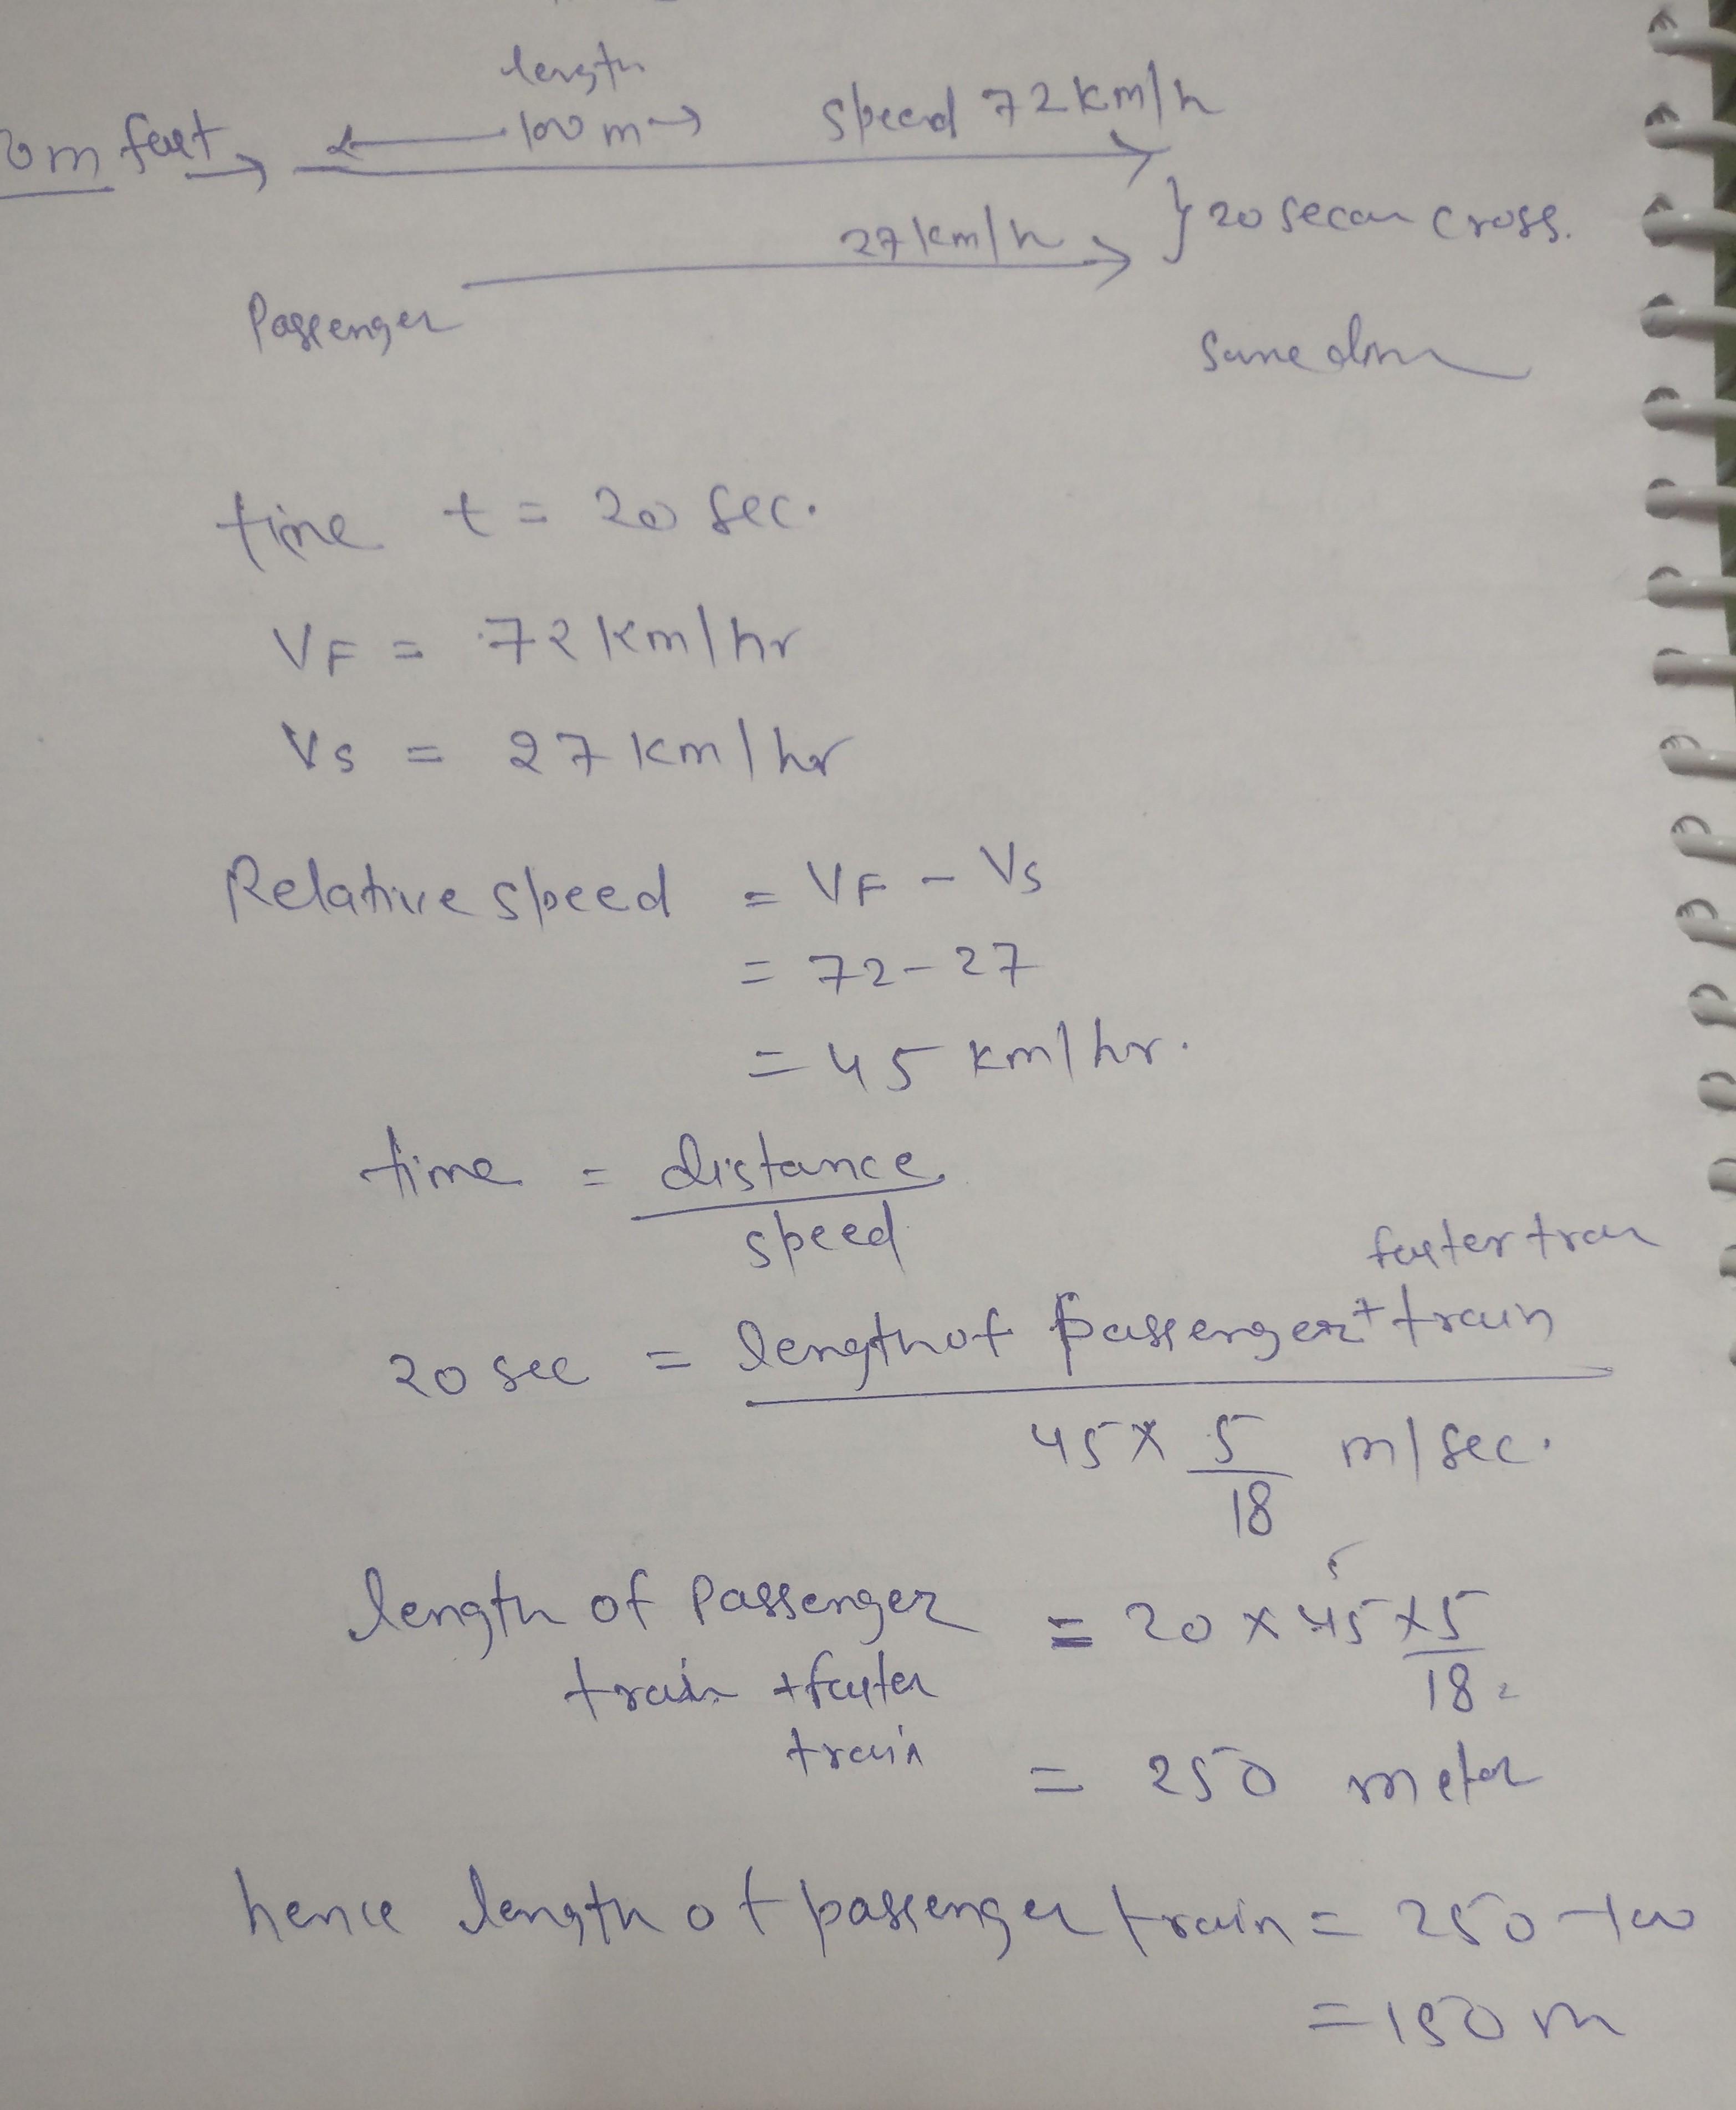 length
0m fast 100 m speed 72 km/h
27 km/h } 20 secon cross.
Passenger
Same dirn
time t = 20 sec.
VF = 72 km/hr
Vs = 27 km/hr
Relative speed = VF - Vs
= 72 - 27
= 45 km/hr.
time = distance
speed
faster train
20 sec = length of passenger + train
45 x 5 m/sec.
18
5
length of Passenger = 20 x 45 x 5
train + faster 18 2
train
= 250 meter
hence length of passenger train = 250 - 100
= 150 m